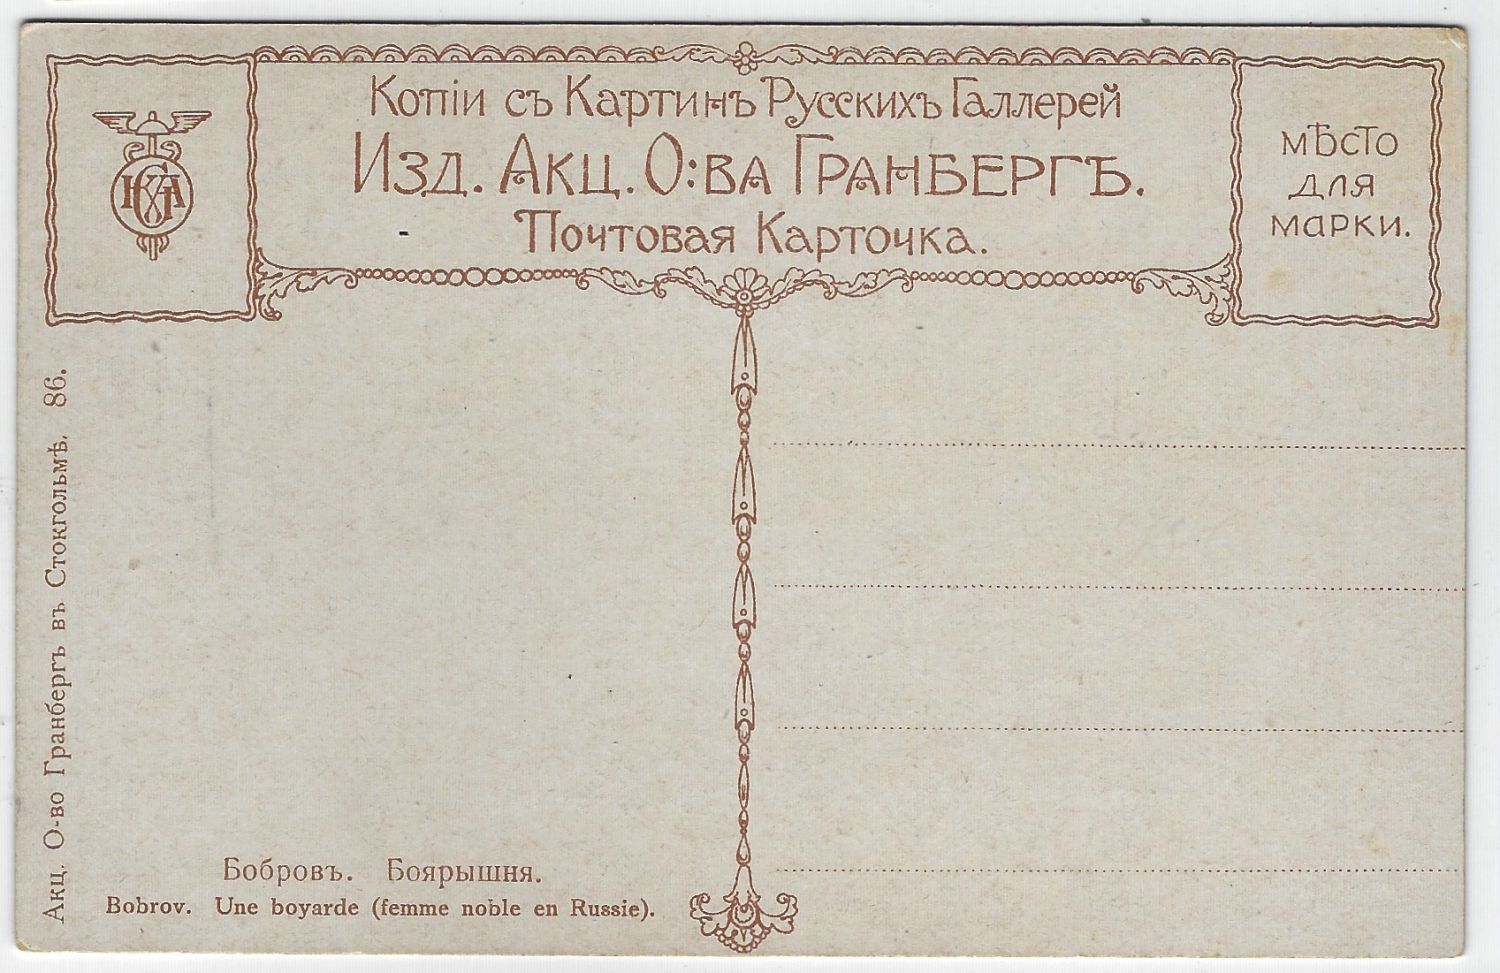 Копіи съ Картинъ Русскихъ Галлерей
Изд. Акц. О:ва Гранбергъ.
Почтовая Карточка.
мѣсто
для
марки.
Акц. О-во Гранбергъ въ Стокгольмѣ. 86.
Бобровъ. Боярышня.
Bobrov. Une boyarde (femme noble en Russie).